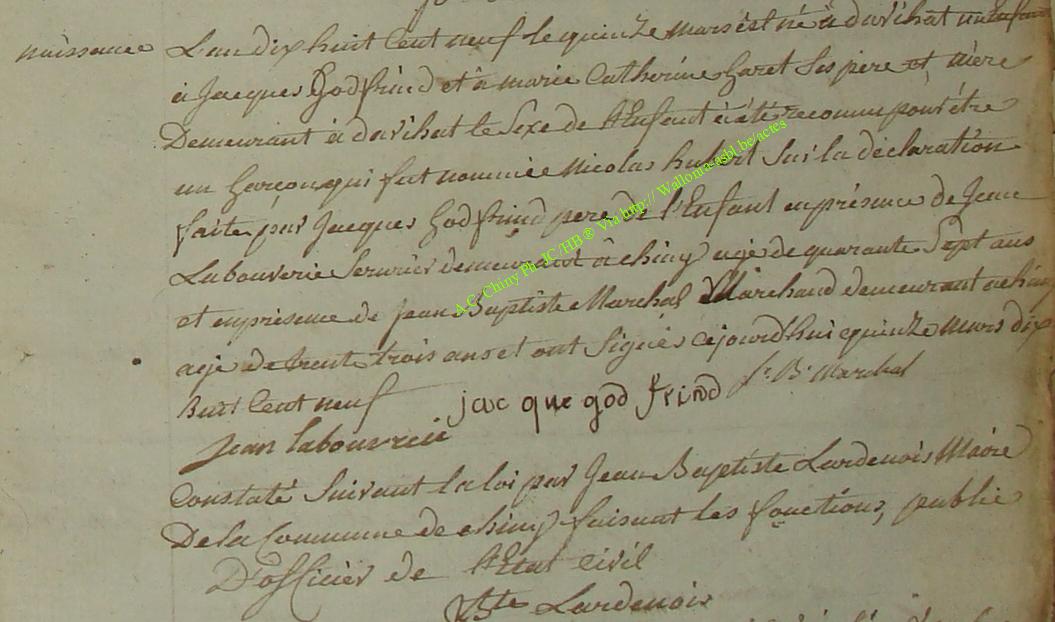 naissance L'an dix huit Cent neuf le quinze mars est né à davihat un Enfant
à Jacques Godfrind et à marie Catherine Garet Ses pere et mère
Demeurant à davihat le Sexe de l'Enfant à été reconnu pour être
un Garçon qui fut nommée Nicolas hubert Sur la déclaration
faite par Jacques Godfrind pere de l'Enfant en présence de Jean
Labouverie Serurier demeurant à chiny agé de quarante Sept ans
et en présence de Jean Baptiste Marchal Marchand demeurant a chiny
agé de trente trois ans et ont Signés cejourd'hui quinze mars dix
huit Cent neuf
jac que god frind J. B. Marchal
Jean labouverie
Constaté Suivant la loi par Jean Baptiste Lardenois Maire
De la Commune de chiny faisant les fonctions, public
D'officier de l'Etat Civil
JBte Lardenois
A.G. Chiny Ph JC HB ® Via http:// Wallonia-asbl.be/actes